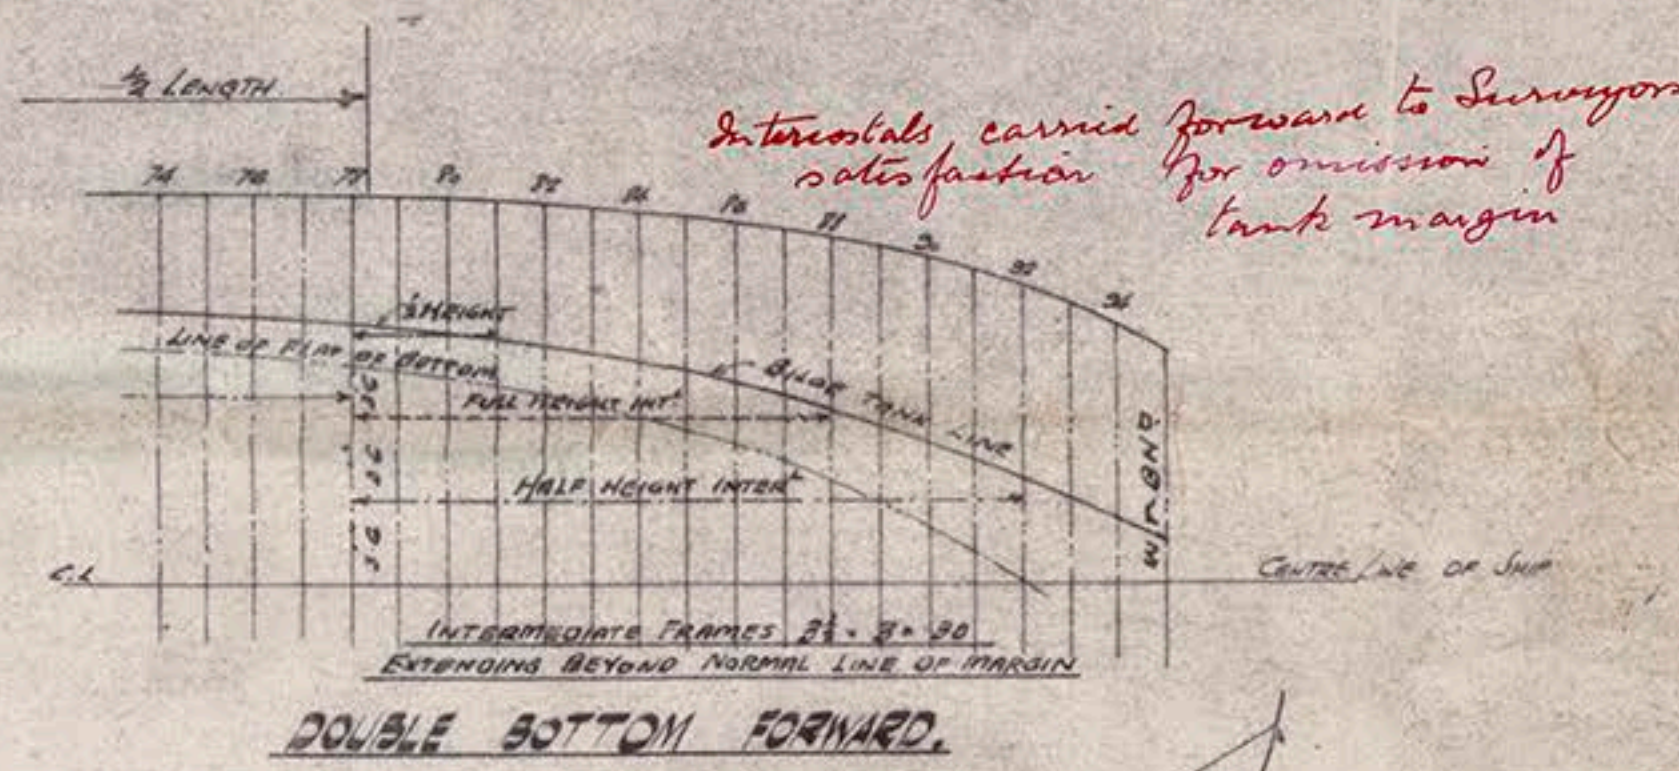 ½ LENGTH.
Intercostals carried forward to Surveyors
satisfaction for omission of
tank margin
74 76 78 80 82 84 86 88 90 92 94
½ HEIGHT
LINE OF FLAT OF BOTTOM
BILGE TANK LINE
FULL HEIGHT INTL
HALF HEIGHT INTERL
C.L
CENTRE LINE OF SHIP
INTERMEDIATE FRAMES
EXTENDING BEYOND NORMAL LINE OF MARGIN
DOUBLE BOTTOM FORWARD.